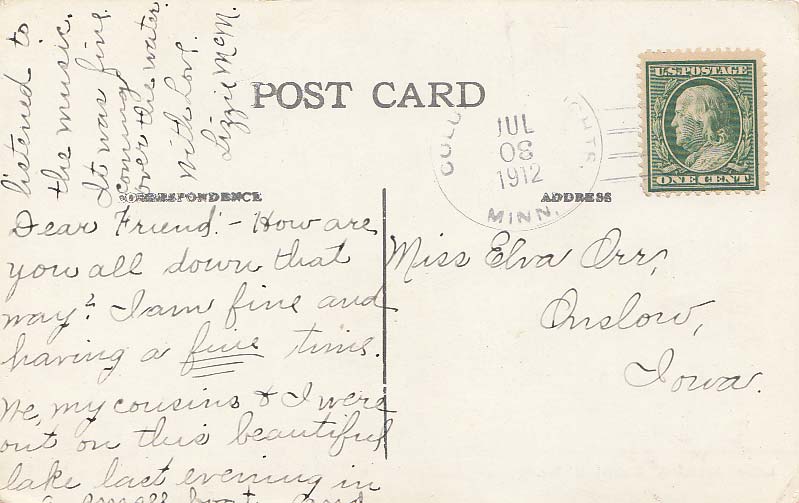 POST CARD
CORRESPONDENCE
ADDRESS
U.S. POSTAGE
ONE CENT
JUL
08
1912
MINN.
Miss Elva Orr,
Onslow,
Iowa.
Dear Friend:- How are
you all down that
way? I am fine and
having a fine time.
We, my cousins & I were
out on this beautiful
lake last evening in
a small boat, and
listened to
the music.
It was fine
coming
over the water.
With Love.
Lizzie McM.